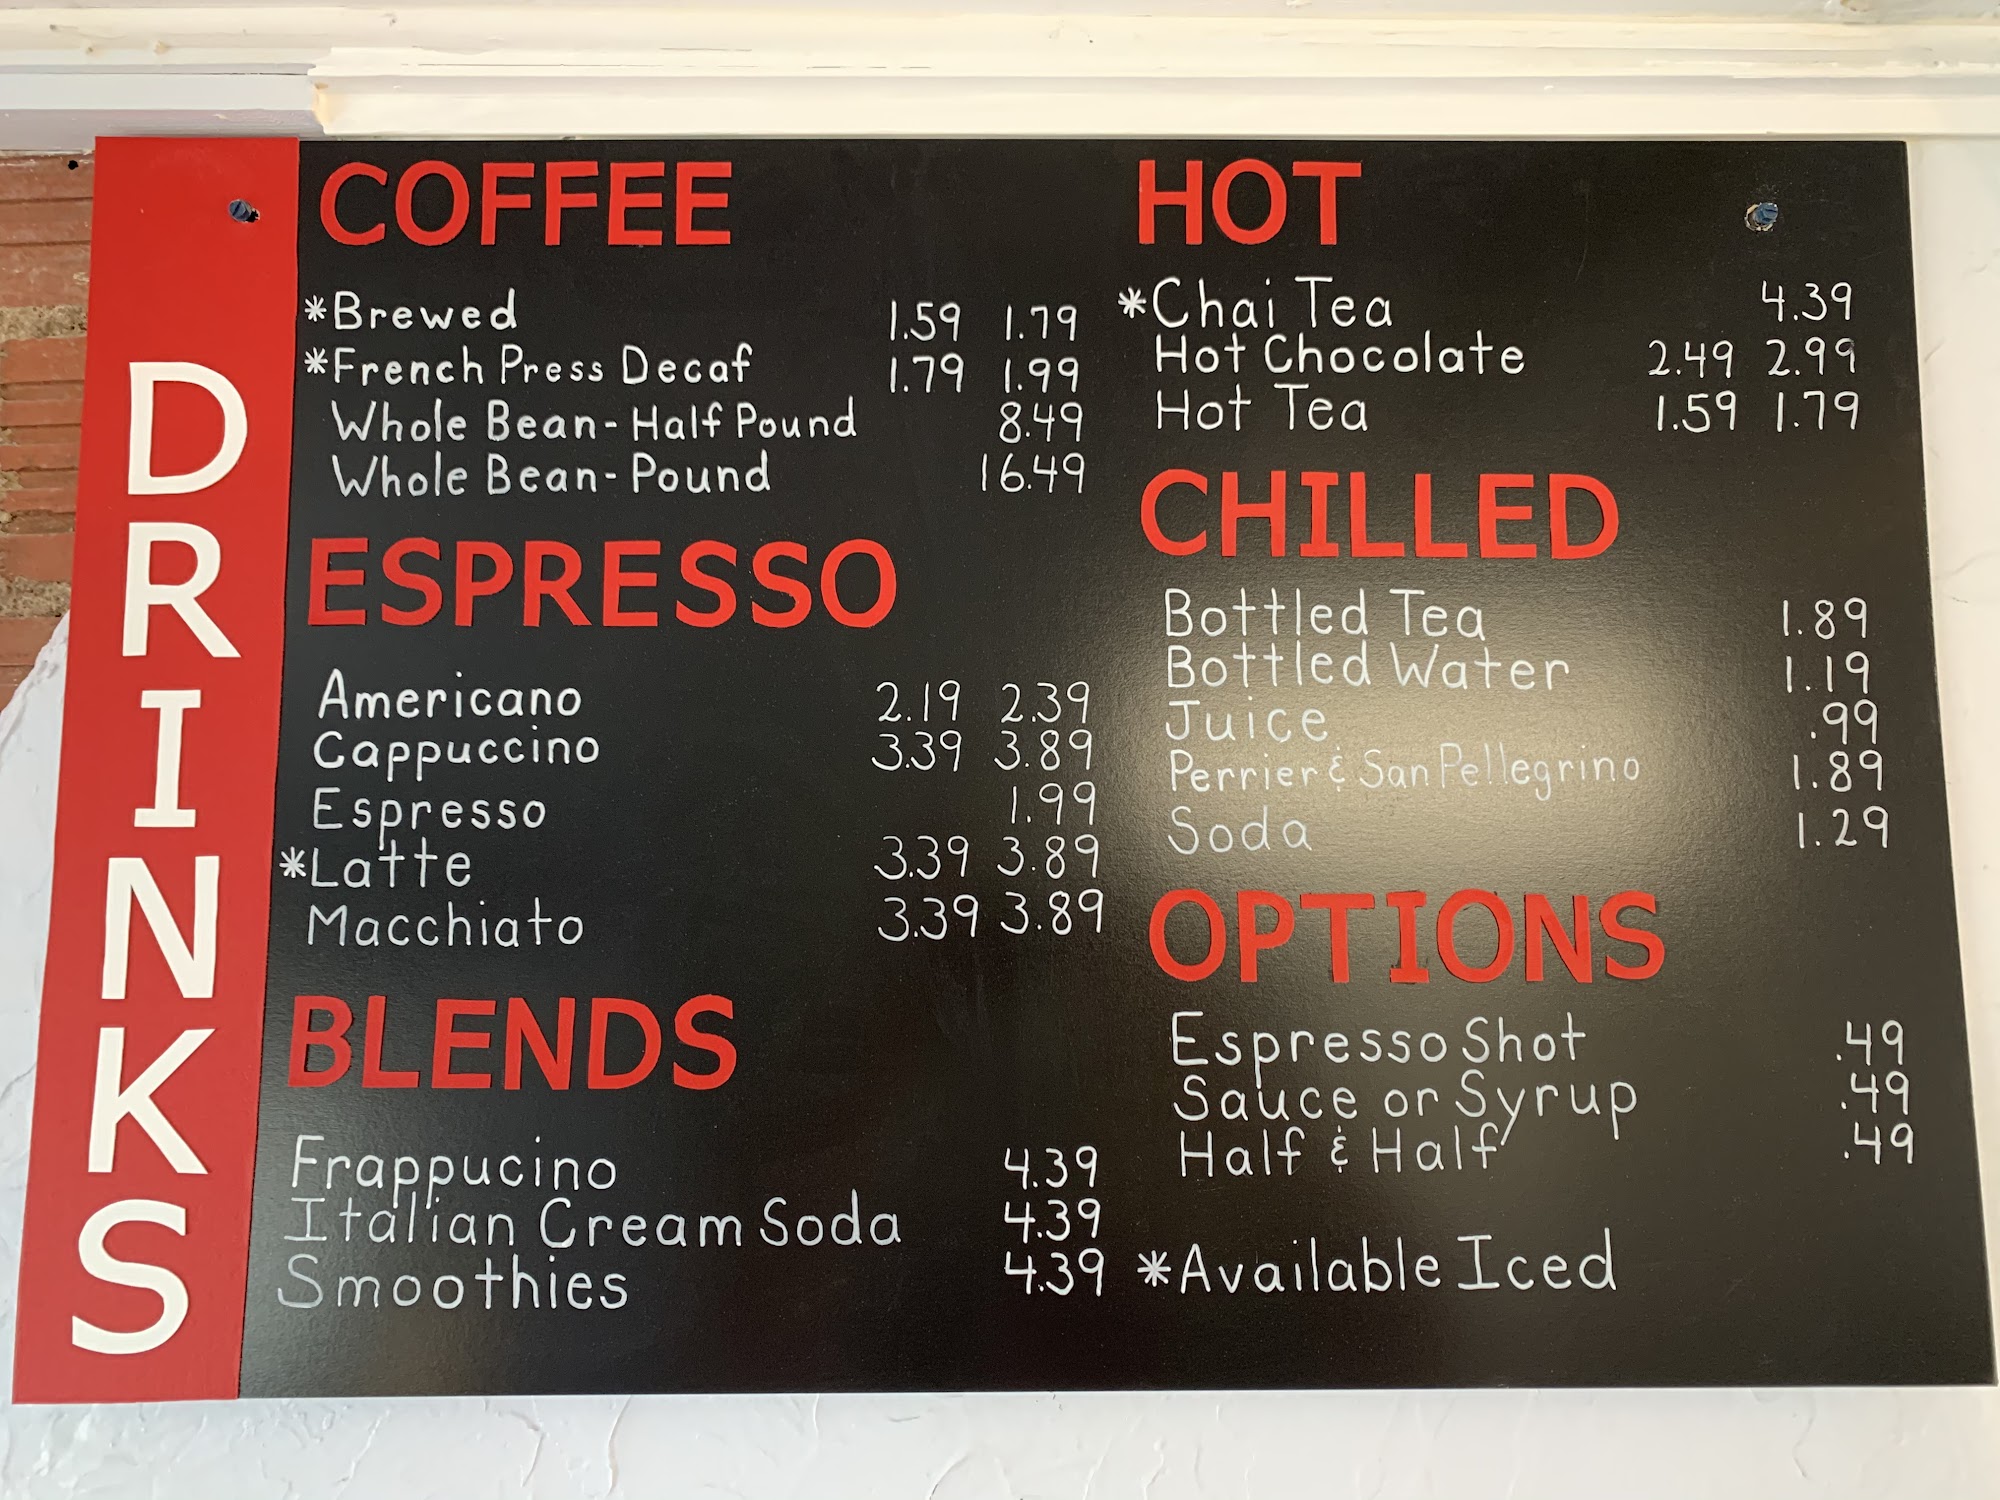 DRINKS
COFFEE
*Brewed 1.59 1.79
*French Press Decaf 1.79 1.99
Whole Bean-Half Pound 8.49
Whole Bean-Pound 16.49
ESPRESSO
Americano 2.19 2.39
Cappuccino 3.39 3.89
Espresso 1.99
*Latte 3.39 3.89
Macchiato 3.39 3.89
BLENDS
Frappucino 4.39
Italian Cream Soda 4.39
Smoothies 4.39
HOT
*Chai Tea 4.39
Hot Chocolate 2.49 2.99
Hot Tea 1.59 1.79
CHILLED
Bottled Tea 1.89
Bottled Water 1.19
Juice .99
Perrier & San Pellegrino 1.89
Soda 1.29
OPTIONS
Espresso Shot .49
Sauce or Syrup .49
Half & Half .49
*Available Iced